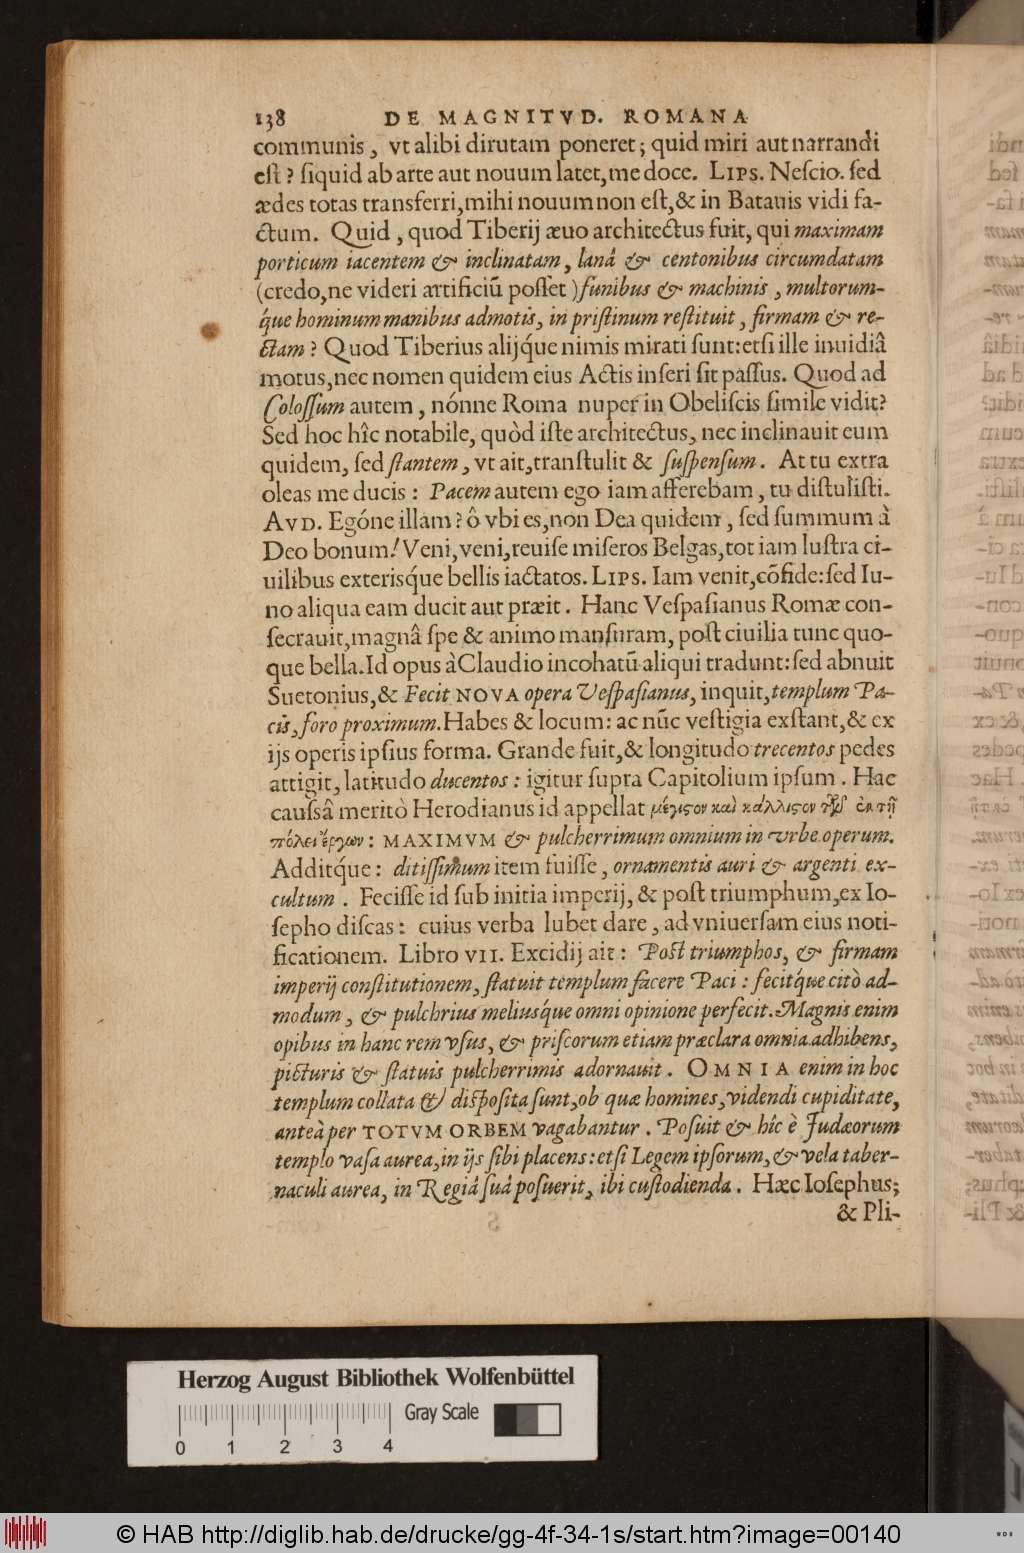 138 DE MAGNITVD. ROMANA
communis, vt alibi dirutam poneret; quid miri aut narrandi
eſt? ſiquid ab arte aut nouum latet, me doce. LIPS. Neſcio. ſed
ædes totas transferri, mihi nouum non eſt, & in Batauis vidi fa-
ctum. Quid, quod Tiberij æuo architectus fuit, qui maximam
porticum iacentem & inclinatam, lanâ & centonibus circumdatam
(credo, ne videri artificiū poſſet) funibus & machinis, multorum-
q́ue hominum manibus admotis, in priſtinum reſtituit, firmam & re-
ctam? Quod Tiberius alijq́ue nimis mirati ſunt: etſi ille inuidiâ
motus, nec nomen quidem eius Actis inſeri ſit paſſus. Quod ad
Coloſſum autem, nónne Roma nuper in Obeliſcis ſimile vidit?
Sed hoc hîc notabile, quòd iſte architectus, nec inclinauit eum
quidem, ſed ſtantem, vt ait, tranſtulit & ſuſpenſum. At tu extra
oleas me ducis: Pacem autem ego iam afferebam, tu diſtuliſti.
AVD. Egóne illam? ô vbi es, non Dea quidem, ſed ſummum à
Deo bonum! Veni, veni, reuiſe miſeros Belgas, tot iam luſtra ci-
uilibus exterisq́ue bellis iactatos. LIPS. Iam venit, cōfide: ſed Iu-
no aliqua eam ducit aut præit. Hanc Veſpaſianus Romæ con-
ſecrauit, magnâ ſpe & animo manſuram, poſt ciuilia tunc quo-
que bella. Id opus à Claudio incohatū aliqui tradunt: ſed abnuit
Suetonius, & Fecit NOVA opera Veſpaſianus, inquit, templum Pa-
cis, foro proximum. Habes & locum: ac nūc veſtigia exſtant, & ex
ijs operis ipſius forma. Grande fuit, & longitudo trecentos pedes
attigit, latitudo ducentos: igitur ſupra Capitolium ipſum. Hac
cauſsâ meritò Herodianus id appellat μέγιϛον καὶ κάλλιϛον τῶν ἐν τῇ
πόλει ἔργων: MAXIMVM & pulcherrimum omnium in vrbe operum.
Additq́ue: ditiſſimum item fuiſſe, ornamentis auri & argenti ex-
cultum. Feciſſe id ſub initia imperij, & poſt triumphum, ex Io-
ſepho diſcas: cuius verba lubet dare, ad vniuerſam eius noti-
ficationem. Libro VII. Excidij ait: Poſt triumphos, & firmam
imperij conſtitutionem, ſtatuit templum facere Paci: fecitq́ue citò ad-
modum, & pulchrius meliusq́ue omni opinione perfecit. Magnis enim
opibus in hanc rem vſus, & priſcorum etiam præclara omnia adhibens,
picturis & ſtatuis pulcherrimis adornauit. OMNIA enim in hoc
templum collata & diſpoſita ſunt, ob quæ homines, videndi cupiditate,
anteà per TOTVM ORBEM vagabantur. Poſuit & hîc è Judæorum
templo vaſa aurea, in ijs ſibi placens: etſi Legem ipſorum, & vela taber-
naculi aurea, in Regiâ ſuâ poſuerit, ibi cuſtodienda. Hæc Ioſephus;
& Pli-
Herzog August Bibliothek Wolfenbüttel
Gray Scale
0 1 2 3 4
© HAB http://diglib.hab.de/drucke/gg-4f-34-1s/start.htm?image=00140